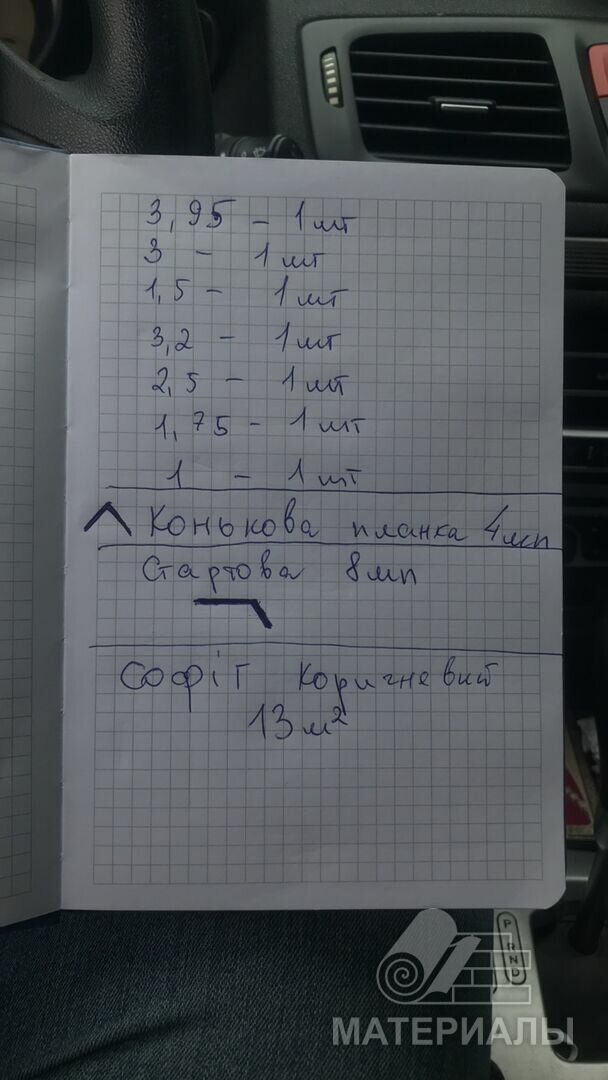 3,95 - 1 шт
3 - 1 шт
1,5 - 1 шт
3,2 - 1 шт
2,5 - 1 шт
1,75 - 1 шт
1 - 1 шт
Конькова планка 4мп
Стартова 8мп
Софіт коричневий
13 м²
P
R
N
D
МАТЕРИАЛЫ